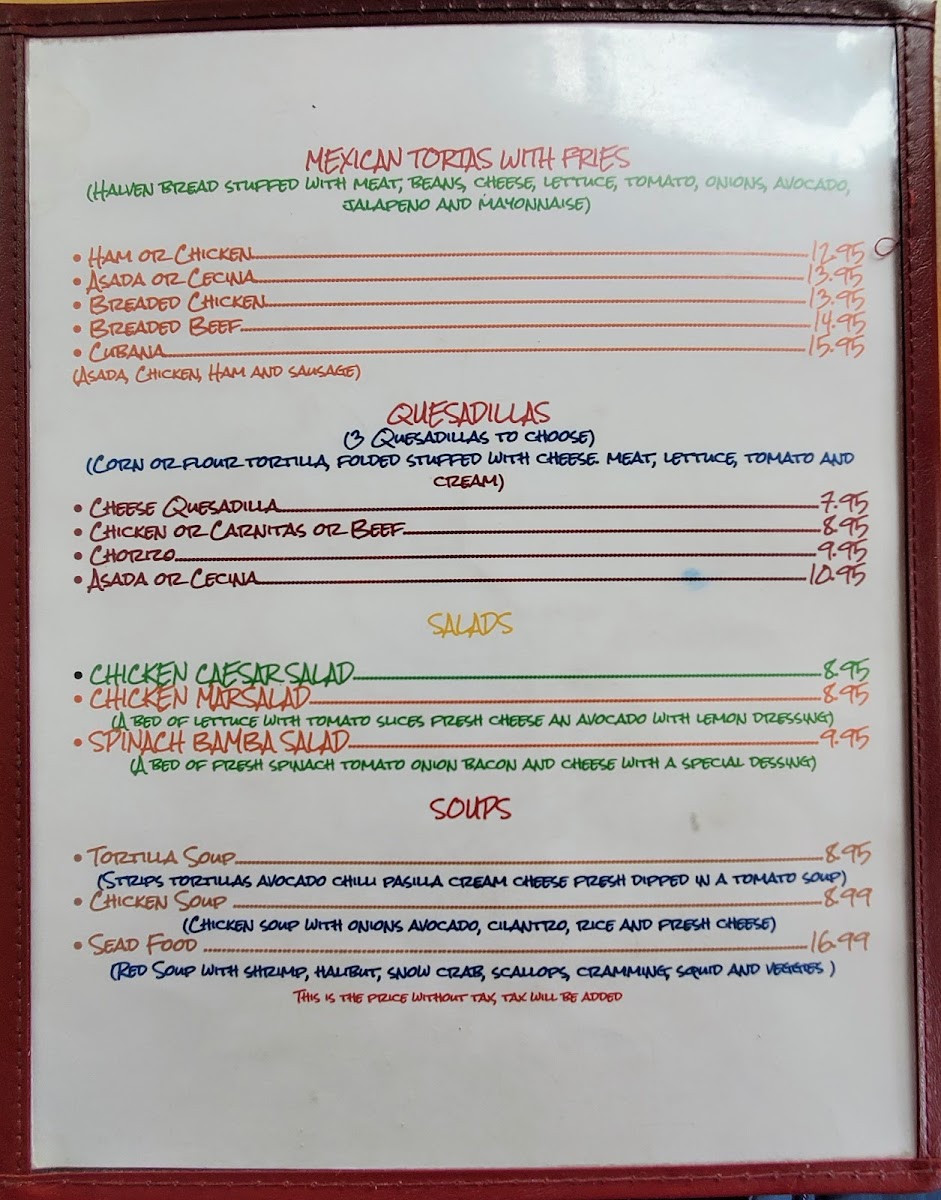 MEXICAN TORTAS WITH FRIES
(HALVEN BREAD STUFFED WITH MEAT, BEANS, CHEESE, LETTUCE, TOMATO, ONIONS, AVOCADO,
JALAPENO AND MAYONNAISE)
• HAM OR CHICKEN 12.95
• ASADA OR CECINA 13.95
• BREADED CHICKEN 13.95
• BREADED BEEF 14.95
• CUBANA 15.95
(ASADA, CHICKEN, HAM AND SAUSAGE)
QUESADILLAS
(3 QUESADILLAS TO CHOOSE)
(CORN OR FLOUR TORTILLA, FOLDED STUFFED WITH CHEESE. MEAT, LETTUCE, TOMATO AND
CREAM)
• CHEESE QUESADILLA 7.95
• CHICKEN OR CARNITAS OR BEEF 8.95
• CHORIZO 9.95
• ASADA OR CECINA 10.95
SALADS
• CHICKEN CAESAR SALAD 8.95
• CHICKEN MARSALAD 8.95
(A BED OF LETTUCE WITH TOMATO SLICES FRESH CHEESE AN AVOCADO WITH LEMON DRESSING)
• SPINACH BAMBA SALAD 9.95
(A BED OF FRESH SPINACH TOMATO ONION BACON AND CHEESE WITH A SPECIAL DESSING)
SOUPS
• TORTILLA SOUP 8.95
(STRIPS TORTILLAS AVOCADO CHILLI PASILLA CREAM CHEESE FRESH DIPPED IN A TOMATO SOUP)
• CHICKEN SOUP 8.99
(CHICKEN SOUP WITH ONIONS AVOCADO, CILANTRO, RICE AND FRESH CHEESE)
• SEAD FOOD 16.99
(RED SOUP WITH SHRIMP, HALIBUT, SNOW CRAB, SCALLOPS, CRAMMING, SQUID AND VEGGIES )
THIS IS THE PRICE WITHOUT TAX, TAX WILL BE ADDED